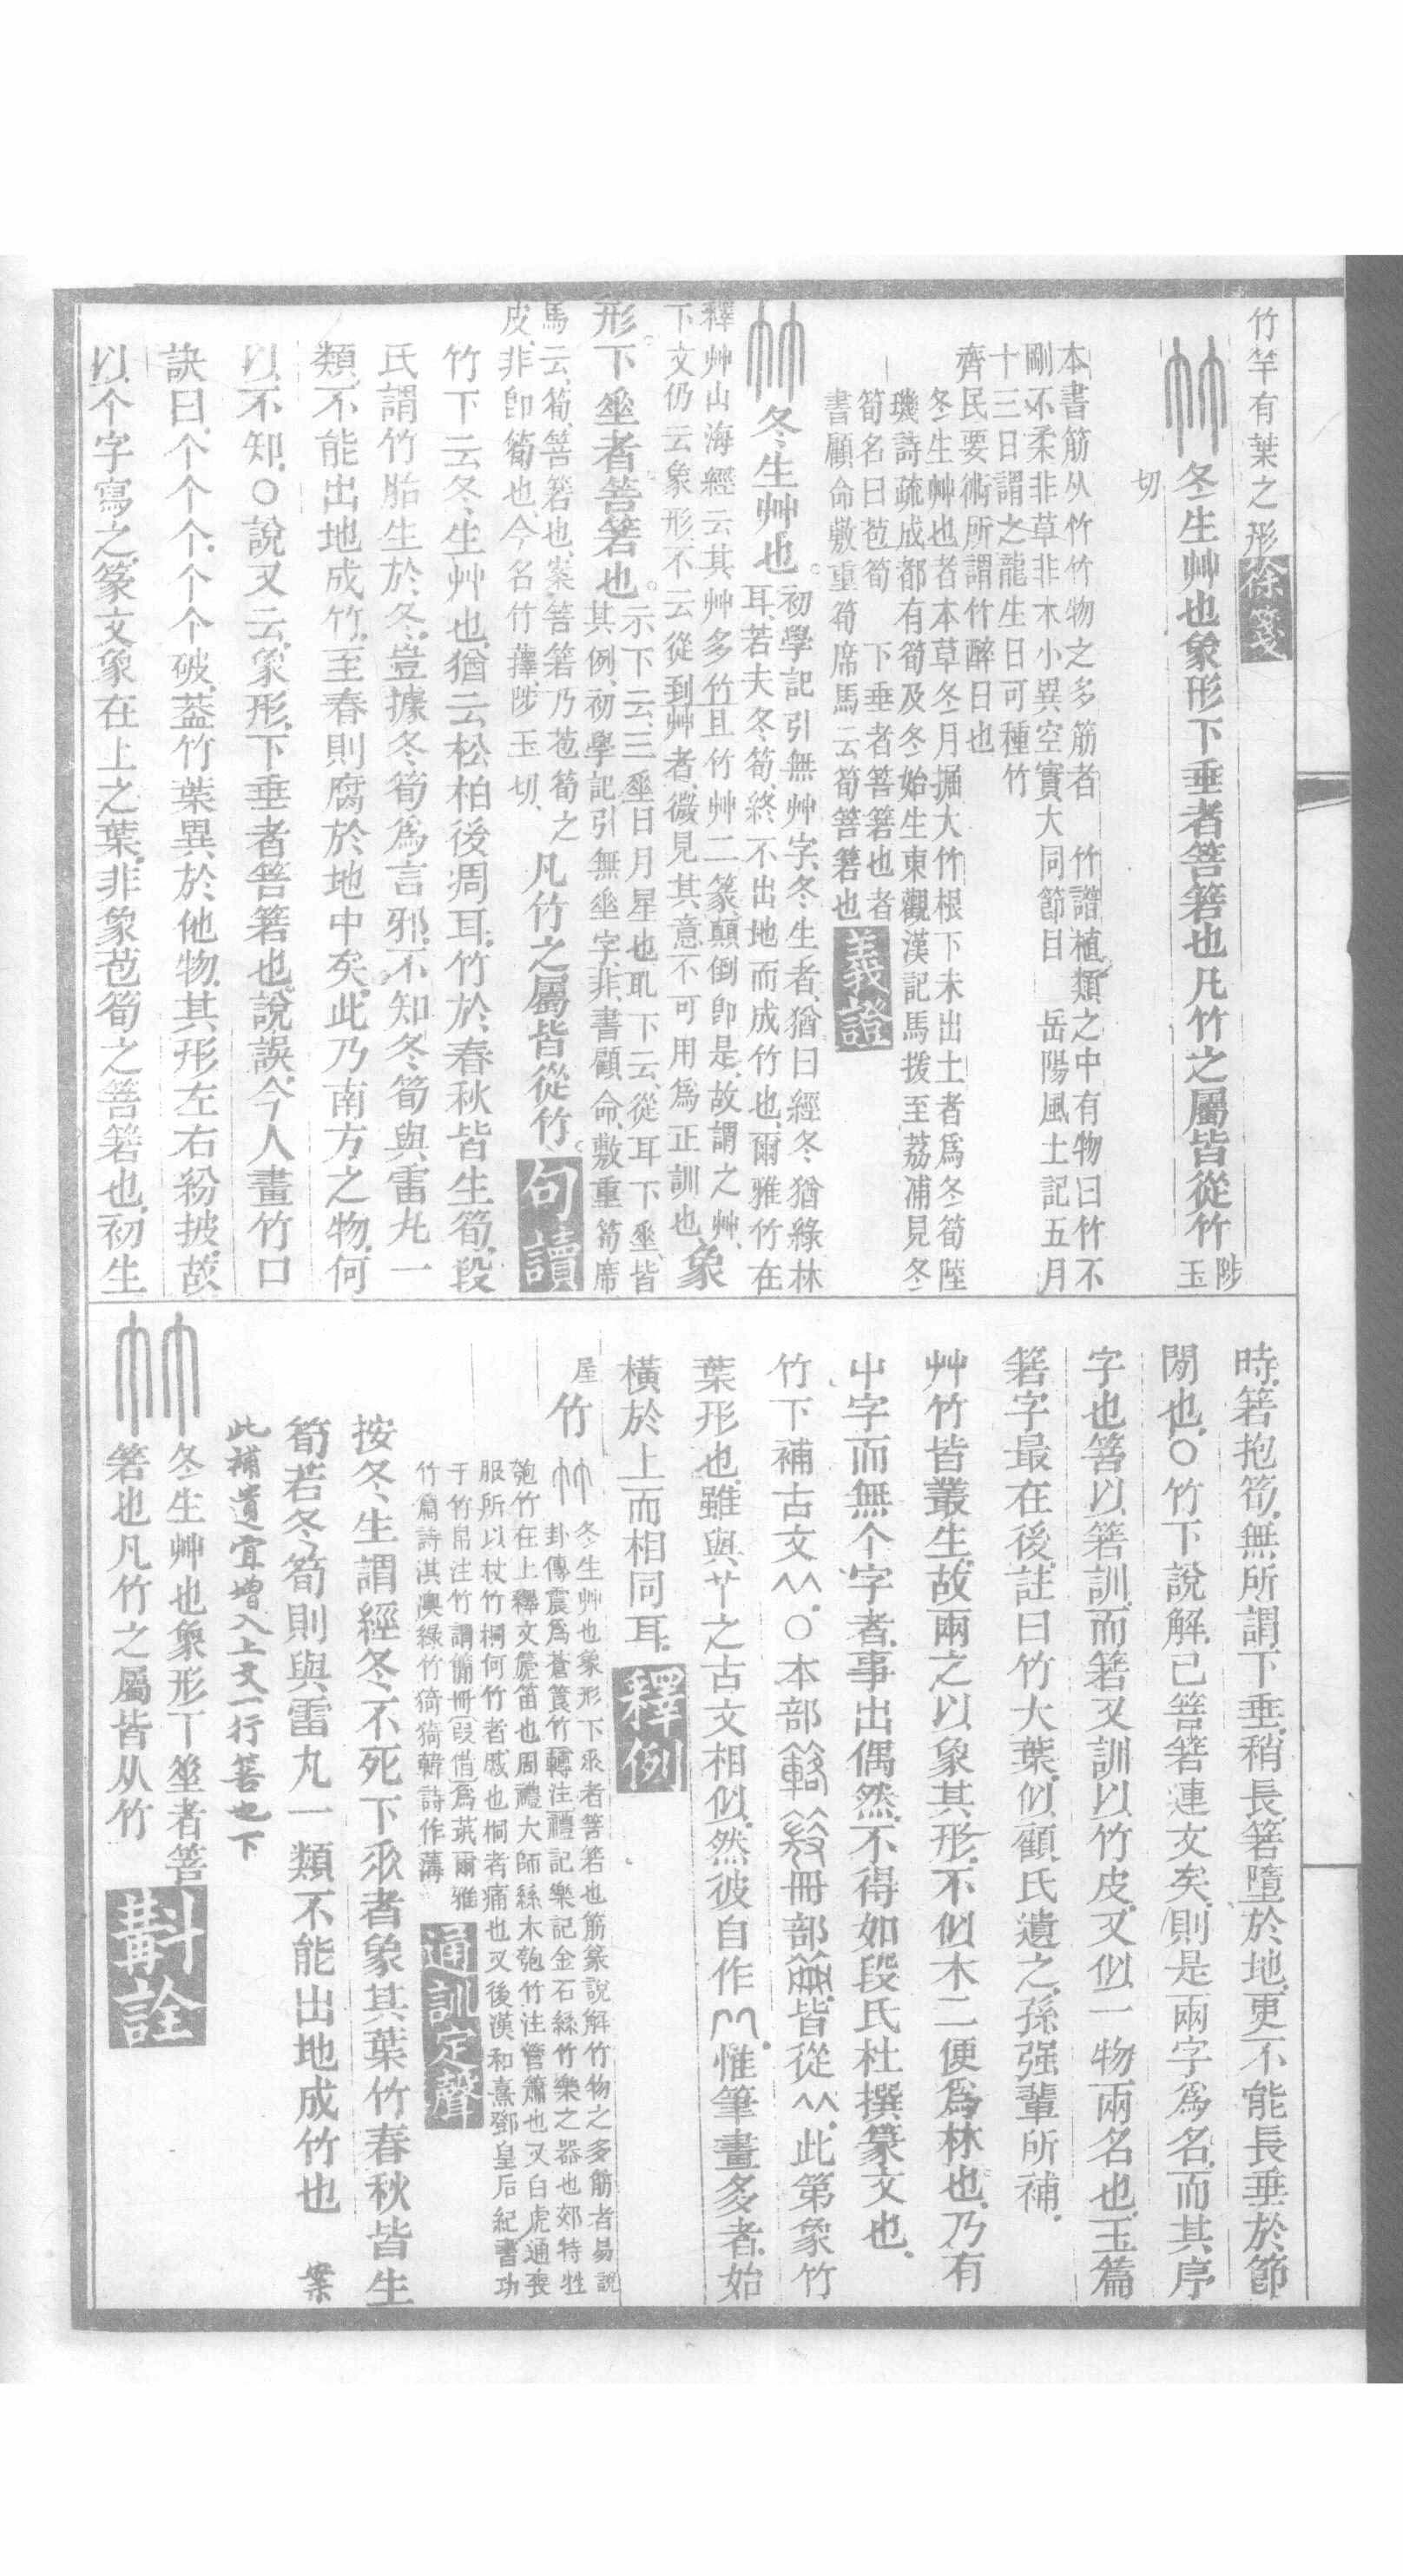 竹竿有葉之形徐箋
冬生艸也象形下垂者箁箬也凡竹之屬皆從竹陟玉
切
本書筋从竹竹物之多筋者　竹譜植類之中有物曰竹不
剛不柔非草非木小異空實大同節目　岳陽風土記五月
十三日謂之龍生日可種竹
齊民要術所謂竹醉日也
冬生艸也者本草冬月掘大竹根下未出土者爲冬筍陸
璣詩疏成都有筍及冬始生東觀漢記馬援至荔浦見冬
筍名曰苞筍　下垂者箁箬也者
書顧命敷重筍席馬云筍箁箬也義證
冬生艸也。初學記引無艸字、冬生者、猶曰經冬猶綠林
耳、若夫冬筍、終不出地而成竹也、爾雅竹在
釋艸山海經云其艸多竹且竹艸二篆、顛倒卽是、故謂之艸、
下文仍云象形、不云從到艸者、微見其意、不可用爲正訓也、象
形。下𠂹者箁箬也。示下云、三𠂹日月星也耴下云、從耳下𠂹、皆
其例、初學記引無𠂹字、非、書顧命、敷重筍席
馬云、筍、箁箬也、案箁箬乃苞筍之
皮、非卽筍也、今名竹蘀、陟玉切、凡竹之屬皆從竹。句讀
竹下云冬生艸也、猶云松柏後凋耳、竹於春秋皆生筍、段
氏謂竹胎生於冬、豈據冬筍爲言邪、不知冬筍與雷丸一
類、不能出地成竹、至春則腐於地中矣、此乃南方之物、何
以不知、○說又云、象形、下垂者箁箬也、說誤、今人畫竹口
訣曰、个个个、个个破、蓋竹葉異於他物、其形左右紛披、故
以个字寫之、篆文象在上之葉、非象苞筍之箁箬也、初生
時、箬抱筍、無所謂下垂、稍長、箬墮於地、更不能長垂於節
閒也、○竹下說解、已箁箬連文矣、則是兩字爲名、而其序
字也、箁以箬訓、而箬又訓以竹皮、又似一物兩名也、玉篇
箬字最在後、註曰竹大葉、似顧氏遺之、孫强輩所補、
艸竹皆叢生、故兩之以象其形、不似木二便爲林也、乃有
屮字而無个字者、事出偶然、不得如段氏杜撰篆文也、
竹下補古文𠆢𠆢、○本部冊部皆從𠆢𠆢、此第象竹
葉形也、雖與艹之古文相似、然彼自作、惟筆畫多者、始
橫於上而相同耳、釋例
屋竹冬生艸也象形下𠂹者箁箬也筋篆說解竹物之多筋者易說
卦傳震爲蒼筤竹轉注禮記樂記金石絲竹樂之器也郊特牲
匏竹在上釋文篪笛也周禮大師絲木匏竹注管簫也又白虎通喪
服所以杖竹桐何竹者蹙也桐者痛也又後漢和熹鄧皇后紀書功
于竹帛注竹謂簡冊叚借爲茿爾雅
竹萹詩淇澳綠竹猗猗韓詩作薄通訓定聲
按冬生謂經冬不死下𠂹者象其葉竹春秋皆生
筍若冬筍則與雷丸一類不能出地成竹也　案
此補遺宜增入上文一行箁也下
冬生艸也象形丅𠂹者箁
箬也凡竹之屬皆从竹斠詮